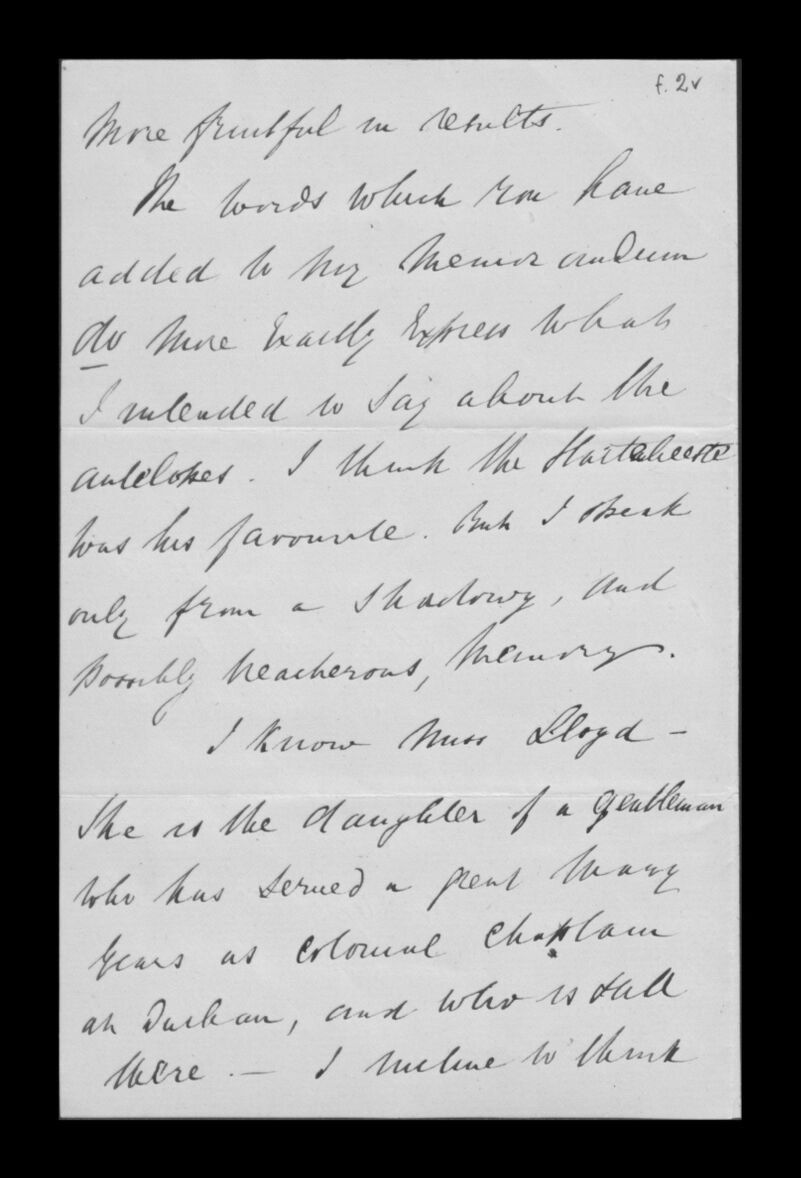 f. 2v
more fruitful in results.
The words which you have
added to my memorandum
do more exactly express what
I intended to say about the
antelopes. I think the Hartebeeste
was his favourite. But I speak
only from a shadowy, and
possibly treacherous, memory.
I know Miss Lloyd -
She is the daughter of a gentleman
who has served a great many
years as colonial chaplain
at Durban, and who is still
there. — I incline to think